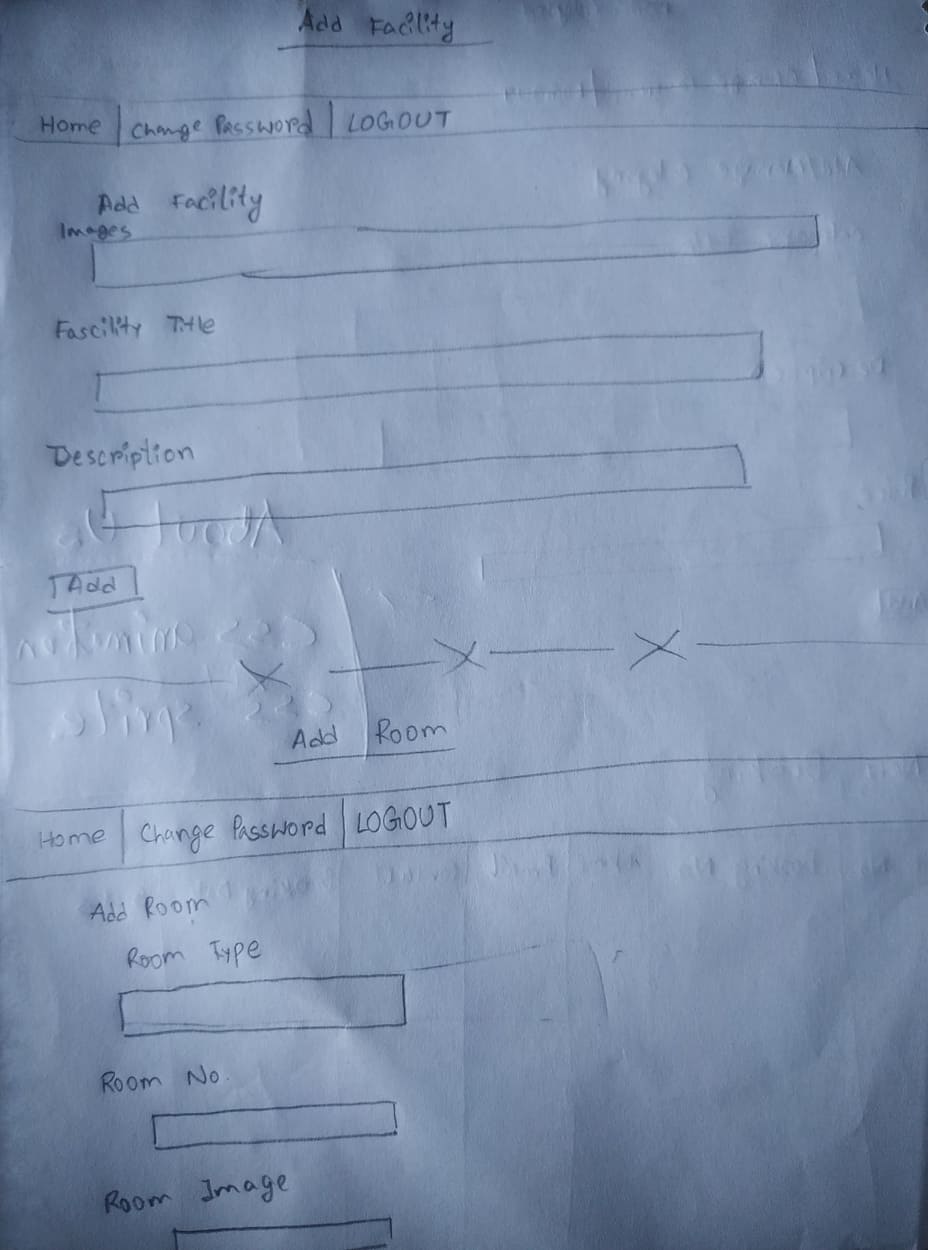 Add Facility
Home | Change Password | LOGOUT
Add Facility
Images
Fascility Title
Description
Add
Add Room
Home | Change Password | LOGOUT
Add Room
Room Type
Room No.
Room Image